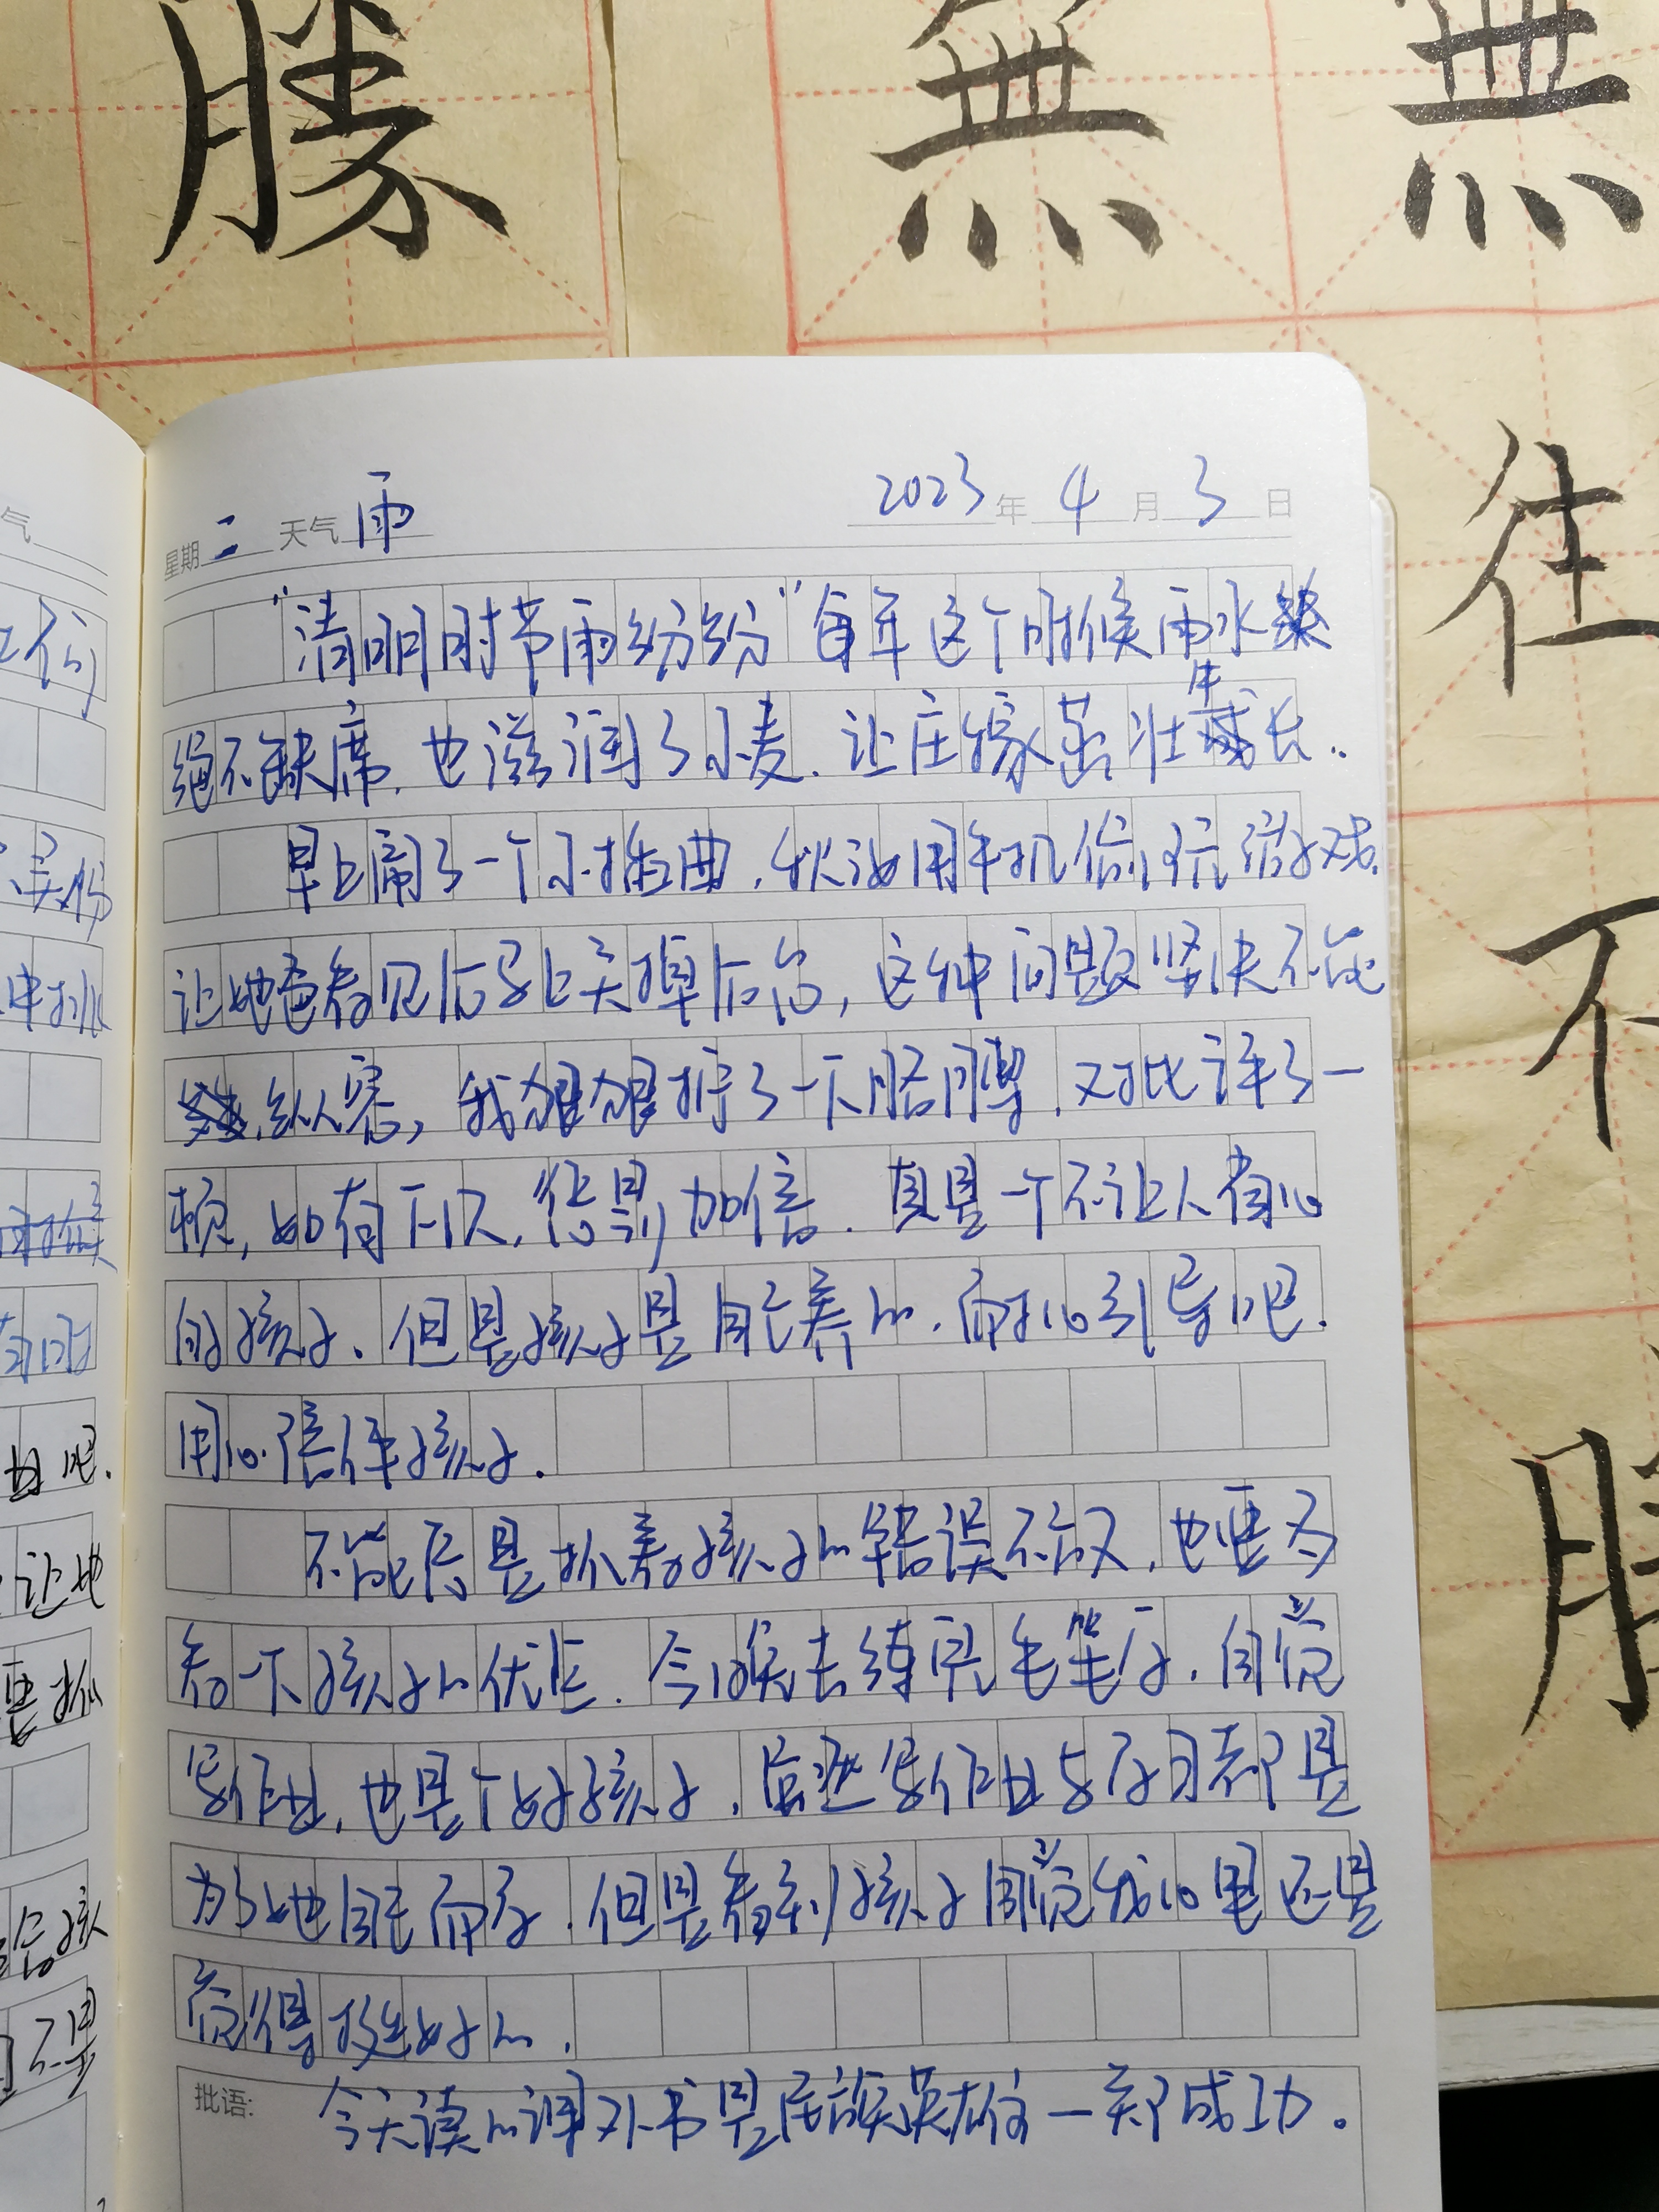 勝 無 無
往
不
勝
星期二 天气雨 2023年4月3日
“清明时节雨纷纷”每年这个时候雨水
绝不缺席.也滋润了小麦.让庄稼茁壮生长.
早上闹了一个小插曲.秋汝用手机偷玩游戏.
让她爸看见后马上关掉后台,这种问题坚决不能
纵容,我狠狠拧了一下胳膊.对比评了一
顿,如有下次.惩罚加倍.真是一个不让人省心
的孩子.但是孩子是自己养的.耐心引导吧.
用心陪伴孩子.
不能总是抓着孩子的错误不放.也要多
看一下孩子的优点.今晚去练完毛笔字.自觉
写作业.也是个好孩子.虽然写作业与学习都是
为了她自己而学.但是看到孩子自觉我心里还是
觉得挺好的.
批语: 今天读的课外书是民族英雄—郑成功。